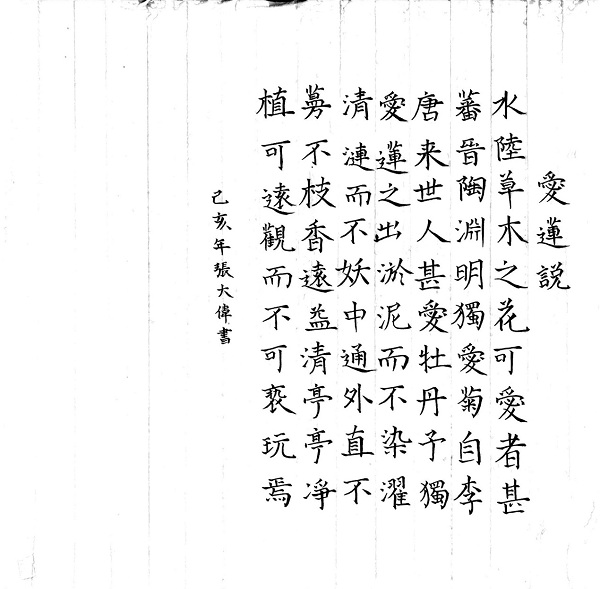 愛蓮説
水陸草木之花可愛者甚
蕃晉陶淵明獨愛菊自李
唐来世人甚愛牡丹予獨
愛蓮之出淤泥而不染濯
清漣而不妖中通外直不
蔓不枝香遠益清亭亭凈
植可遠觀而不可亵玩焉
己亥年張大偉書